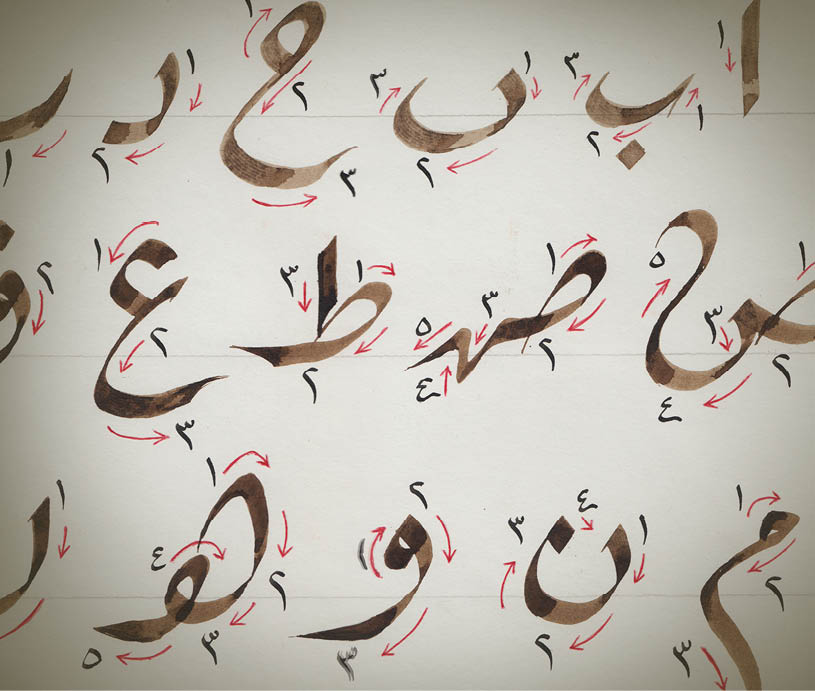 ا ١ ب ١ ٢ ٣ ں ١ ٢ ٣ ح ١ ٢ ٣ د ١ ٢ ر ١
ص ١ ٢ ٣ ٤ ٥ صہ ١ ٢ ٣ ٤ ٥ ط ١ ٢ ٣ ع ١ ٢ ٣ ٢
م ١ ٢ ٣ ن ١ ٢ ٣ ٤ و ١ ٢ ٣ ھ ١ ٢ ٣ ٤ ٥ ١